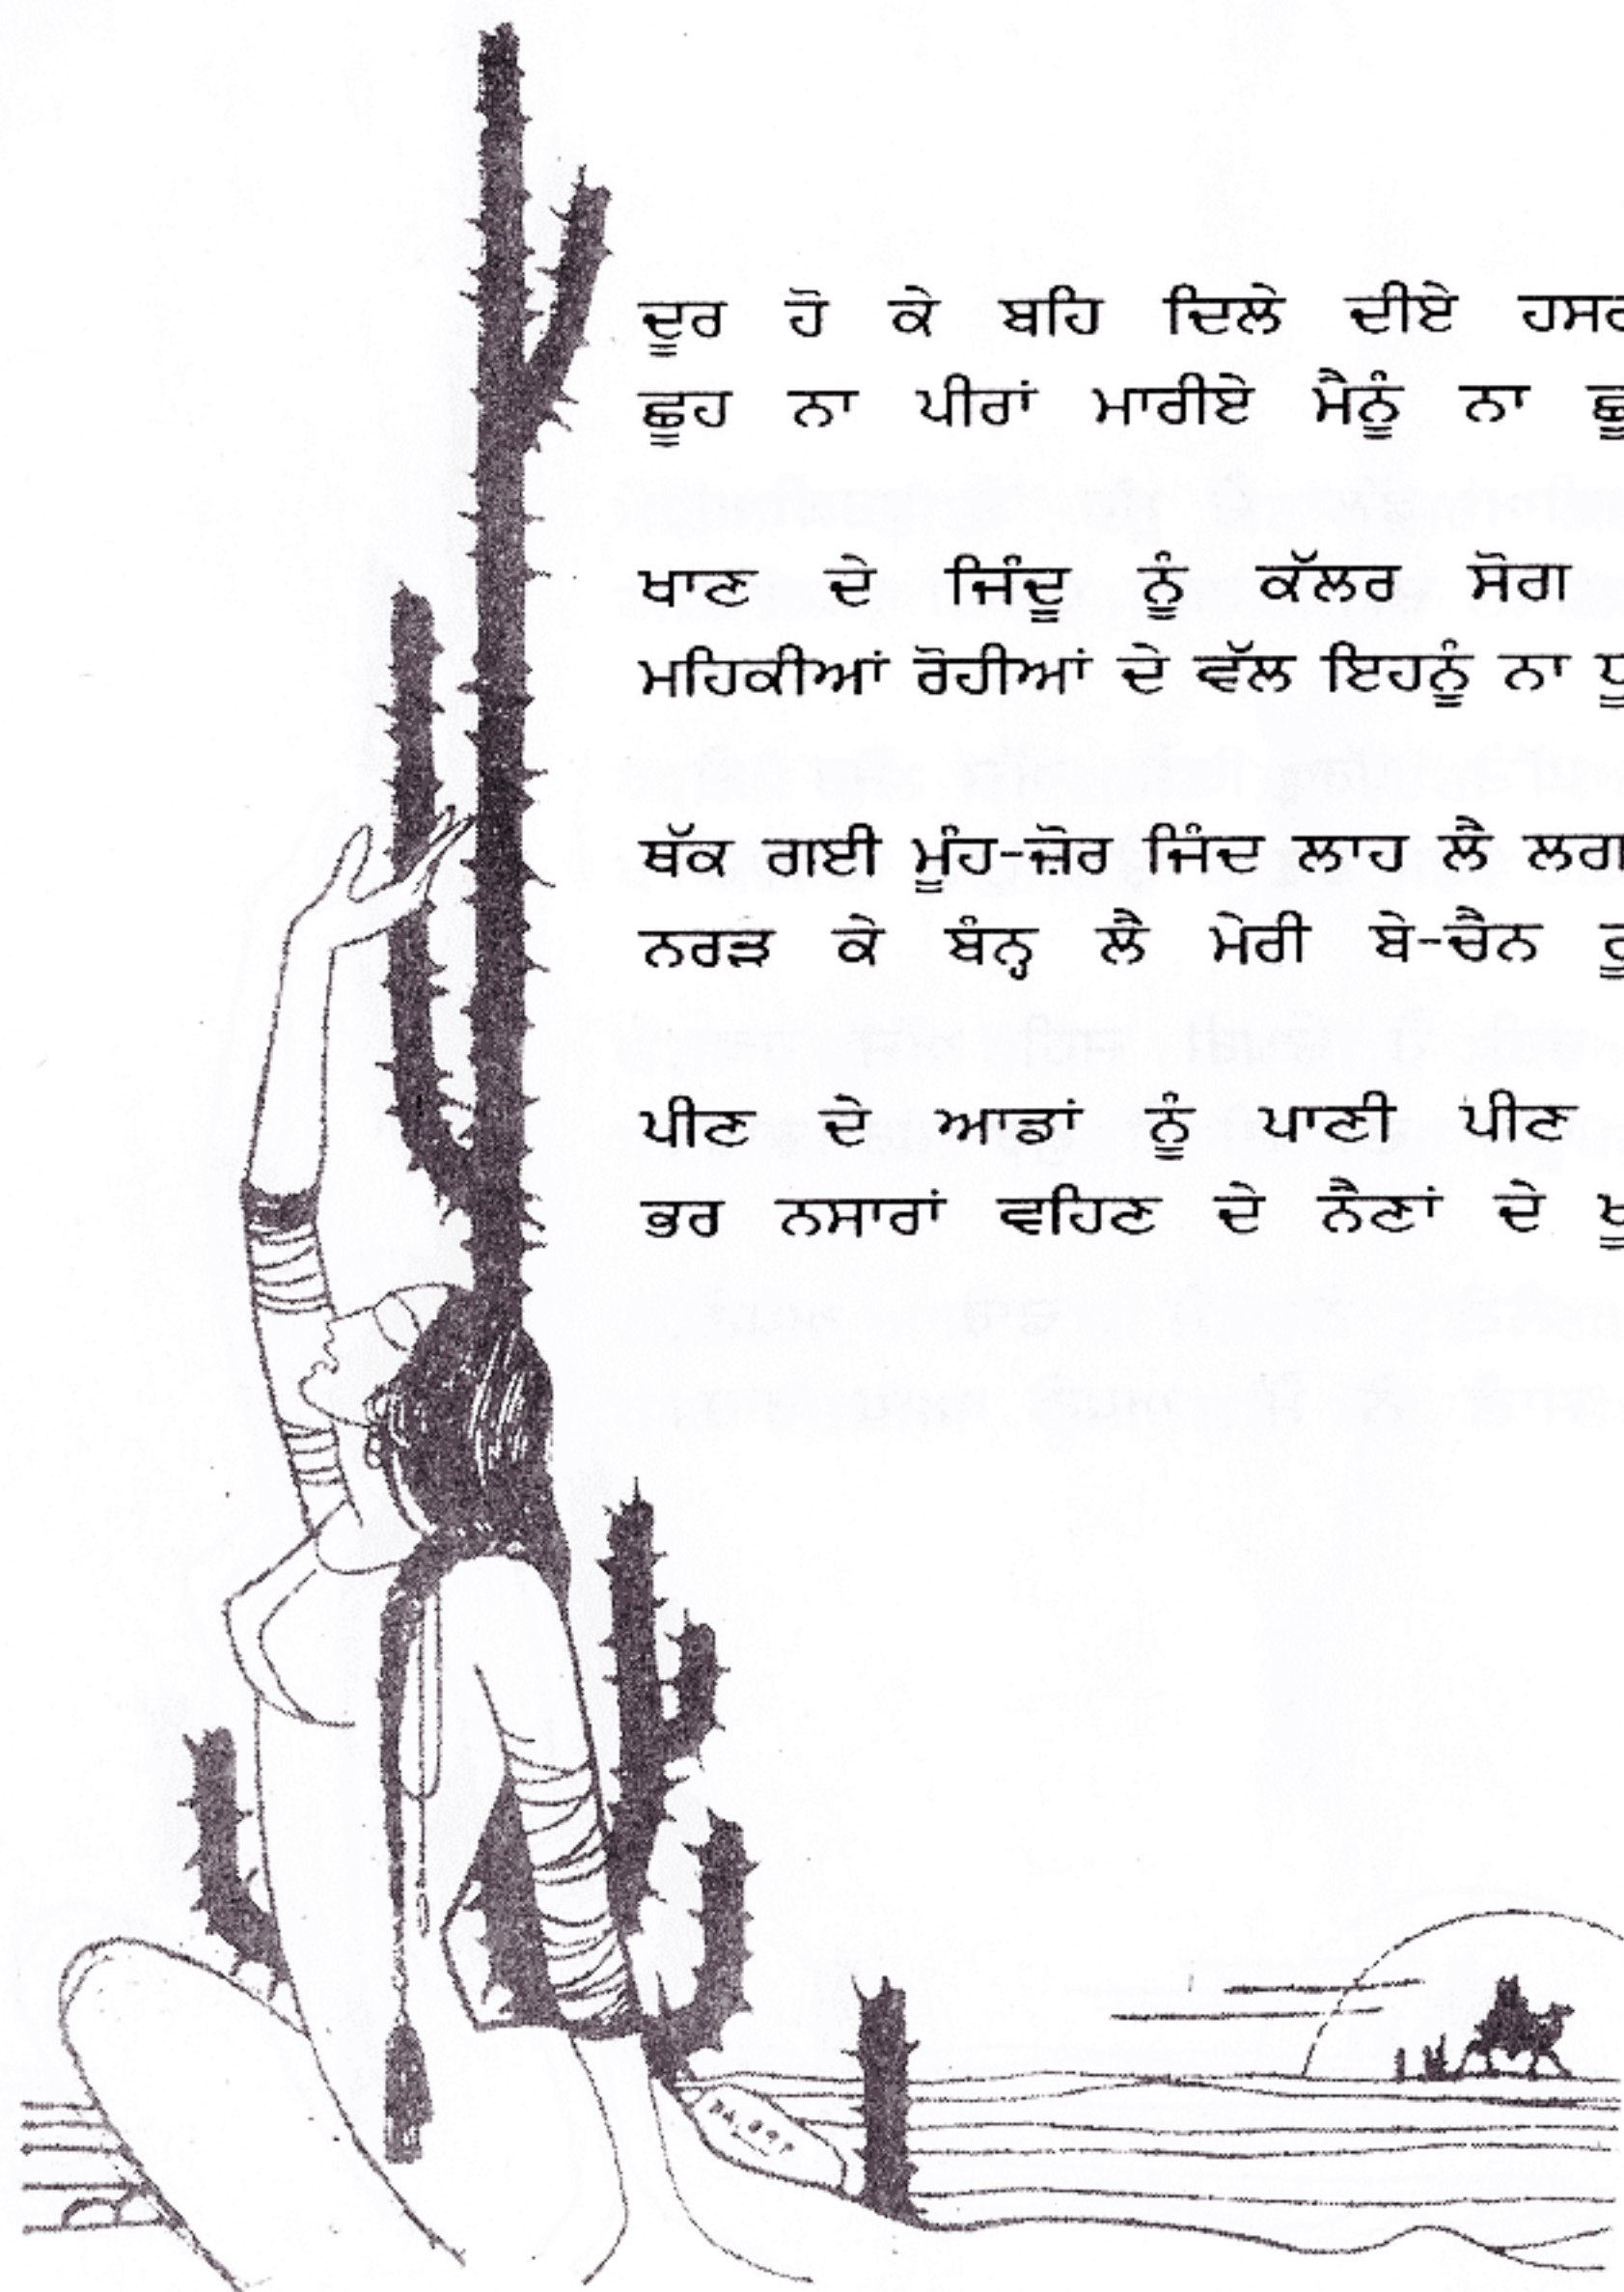 ਦੂਰ ਹੋ ਕੇ ਬਹਿ ਦਿਲੇ ਦੀਏ
ਛੂਹ ਨਾ ਪੀਰਾਂ ਮਾਰੀਏ ਮੈਨੂੰ ਨਾ
ਖਾਣ ਦੇ ਜਿੰਦੂ ਨੂੰ ਕੱਲਰ ਸੋਗ
ਮਹਿਕੀਆਂ ਰੋਹੀਆਂ ਦੇ ਵੱਲ ਇਹਨੂੰ ਨਾ
ਥੱਕ ਗਈ ਮੂੰਹ-ਜ਼ੋਰ ਜਿੰਦ ਲਾਹ ਲੈ
ਨਰੜ ਕੇ ਬੰਨ੍ਹ ਲੈ ਮੇਰੀ ਬੇ-ਚੈਨ
ਪੀਣ ਦੇ ਆਡਾਂ ਨੂੰ ਪਾਣੀ ਪੀਣ
ਭਰ ਨਸਾਰਾਂ ਵਹਿਣ ਦੇ ਨੈਣਾਂ ਦੇ